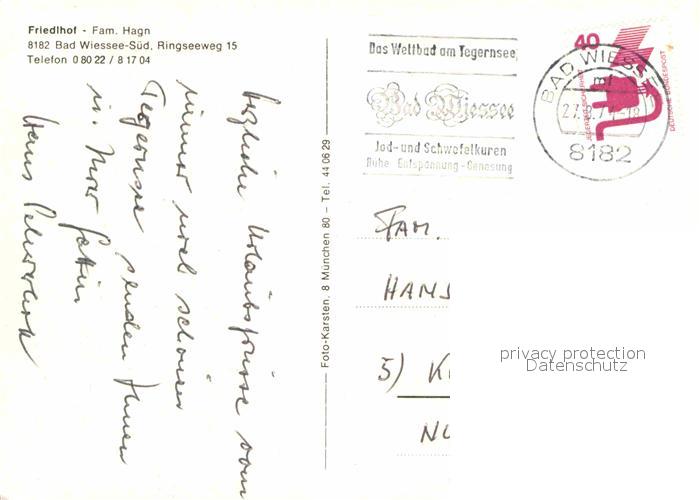 Friedlhof - Fam. Hagn
8182 Bad Wiessee-Süd, Ringseeweg 15
Telefon 0 80 22 / 8 17 04
Herzliche Urlaubsgrüsse vom
immer noch schönen
Tegernsee senden Ihnen
u. Ihrer Gattin
Hans
Foto-Karsten, 8 München 80 - Tel. 44 06 29
Das Weltbad am Tegernsee
Bad Wiessee
Jod- und Schwefelkuren
Ruhe - Entspannung - Genesung
BAD WIESSEE
mf
8182
40
DEUTSCHE BUNDESPOST
FAM.
HANS
5) K
privacy protection
Datenschutz